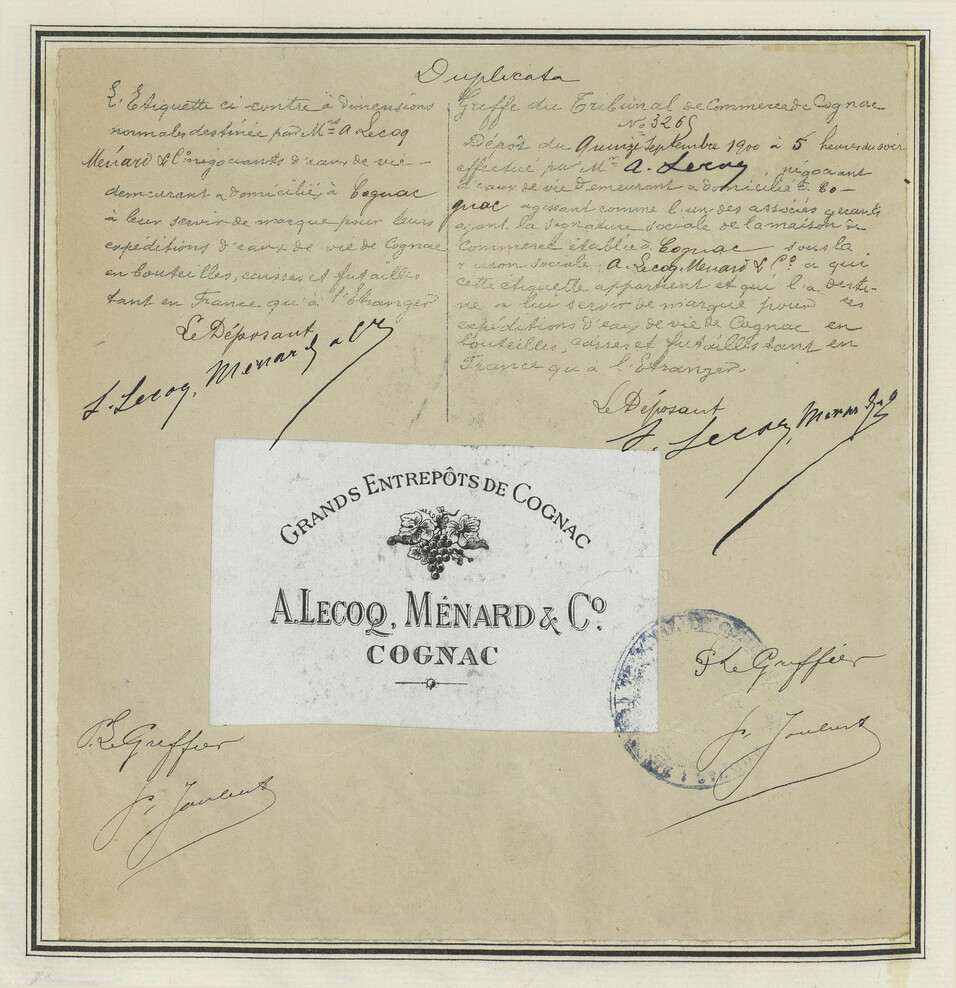 Duplicata
L'Etiquette ci-contre à dimensions
normales destinée par Mrs A. Lecoq
Ménard & Co négociants d'eaux de vie
demeurant & domiciliés à Cognac
à leur servir de marque pour leurs
expéditions d'eaux de vie de Cognac
en bouteilles, caisses et futailles
tant en France qu'à l'Etranger
Le Déposant
A. Lecoq, Menard & Co
Greffe du Tribunal de Commerce de Cognac
No 3265
Dépôt du Quinze Septembre 1900 à 5 heures du soir
effectué par Mr A. Lecoq, négociant
d'eaux de vie demeurant & domicilié à Co-
gnac agissant comme l'un des associés gérants
ayant la signature sociale de la maison de
Commerce établie à Cognac sous la
raison sociale: A. Lecoq, Menard & Co à qui
cette étiquette appartient et qui l'a desti-
née à lui servir de marque pour ses
expéditions d'eaux de vie de Cognac en
bouteilles, caisses et futailles tant en
France qu'à l'Etranger.
Le Déposant
A. Lecoq, Menard & Co
GRANDS ENTREPÔTS DE COGNAC
A. LECOQ, MÉNARD & Co.
COGNAC
Le Greffier
Le Greffier